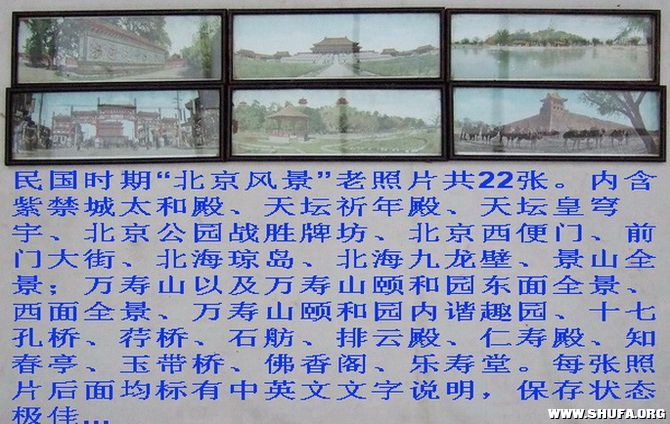 民国时期“北京风景”老照片共22张。内含
紫禁城太和殿、天坛祈年殿、天坛皇穹
宇、北京公园战胜牌坊、北京西便门、前
门大街、北海琼岛、北海九龙壁、景山全
景；万寿山以及万寿山颐和园东面全景、
西面全景、万寿山颐和园内谐趣园、十七
孔桥、荇桥、石舫、排云殿、仁寿殿、知
春亭、玉带桥、佛香阁、乐寿堂。每张照
片后面均标有中英文文字说明，保存状态
极佳...
WWW.SHUFA.ORG